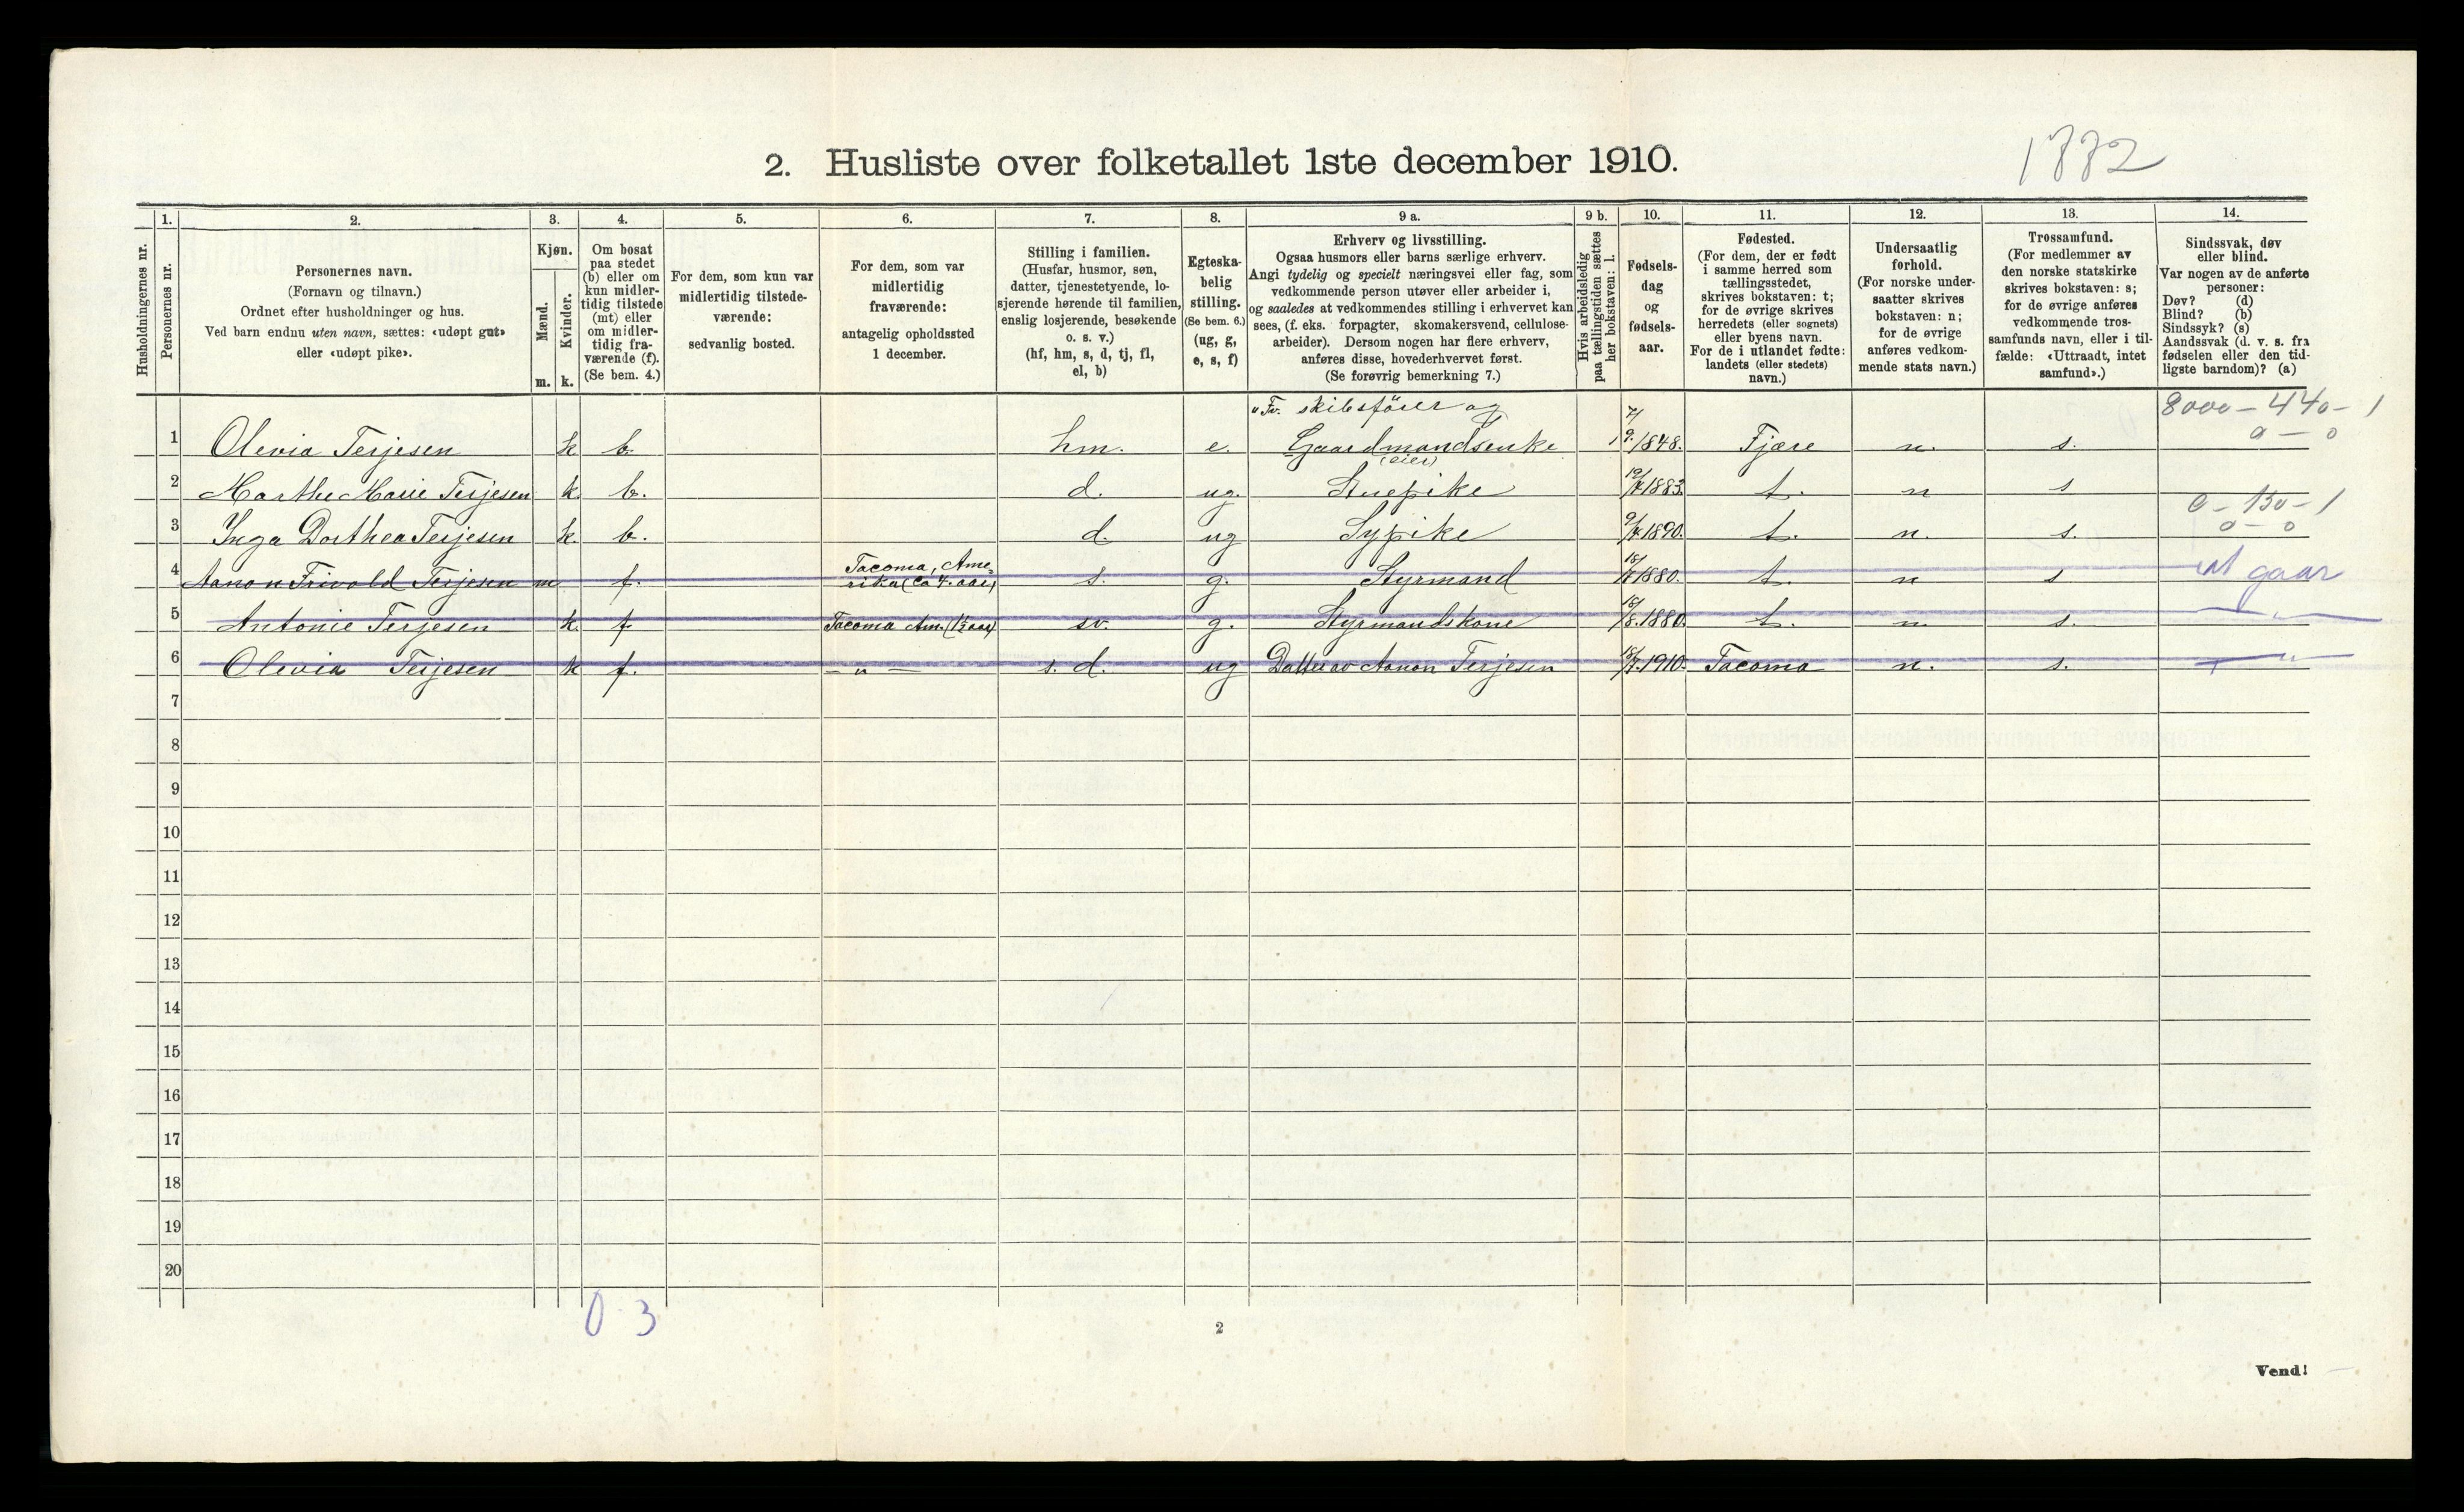 1882
2. Husliste over folketallet 1ste december 1910.
1. 2. 3. 4. 5. 6. 7. 8. 9 a. 9 b. 10. 11. 12. 13. 14.
Husholdningernes nr.
Personernes nr.
Personernes navn.
(Fornavn og tilnavn.)
Ordnet efter husholdninger og hus.
Ved barn endnu uten navn, sættes: «udøpt gut»
eller «udøpt pike».
Kjøn.
Mænd.
Kvinder.
m. k.
Om bosat
paa stedet
(b) eller om
kun midler-
tidig tilstede
(mt) eller
om midler-
tidig fra-
værende (f).
(Se bem. 4.)
For dem, som kun var
midlertidig tilstede-
værende:
sedvanlig bosted.
For dem, som var
midlertidig
fraværende:
antagelig opholdssted
1 december.
Stilling i familien.
(Husfar, husmor, søn,
datter, tjenestetyende, lo-
sjerende hørende til familien,
enslig losjerende, besøkende
o. s. v.)
(hf, hm, s, d, tj, fl,
el, b)
Egteska-
belig
stilling.
(Se bem. 6.)
(ug, g,
e, s, f)
Erhverv og livsstilling.
Ogsaa husmors eller barns særlige erhverv.
Angi tydelig og specielt næringsvei eller fag, som
vedkommende person utøver eller arbeider i,
og saaledes at vedkommendes stilling i erhvervet kan
sees, (f. eks. forpagter, skomakersvend, cellulose-
arbeider). Dersom nogen har flere erhverv,
anføres disse, hovederhvervet først.
(Se forøvrig bemerkning 7.)
Hvis arbeidsledig
paa tællingstiden sættes
her bokstaven: l.
Fødsels-
dag
og
fødsels-
aar.
Fødested.
(For dem, der er født
i samme herred som
tællingsstedet,
skrives bokstaven: t;
for de øvrige skrives
herredets (eller sognets)
eller byens navn.
For de i utlandet fødte:
landets (eller stedets)
navn.)
Undersaatlig
forhold.
(For norske under-
saatter skrives
bokstaven: n;
for de øvrige
anføres vedkom-
mende stats navn.)
Trossamfund.
(For medlemmer av
den norske statskirke
skrives bokstaven: s;
for de øvrige anføres
vedkommende tros-
samfunds navn, eller i til-
fælde: «Uttraadt, intet
samfund».)
Sindssvak, døv
eller blind.
Var nogen av de anførte
personer:
Døv? (d)
Blind? (b)
Sindssyk? (s)
Aandssvak (d. v. s. fra
fødselen eller den tid-
ligste barndom)? (a)
Fv. skibsfører og 8000 - 440 - 1
1 Olevia Terjesen k b. hm. e. Gaardmandsenke 7/9. 1848. Fjære n. s. 0 - 0
(eier)
2 Marthe Marie Terjesen k b. d. ug. Stuepike 1883. t. n s
0 - 130 - 1
3 Inga Dorthea Terjesen k. b. d. ug Sypike 1890. t. n. s. 0 - 0
Tacoma, Ame-
4 Aanon Frivold Terjesen m f. rika (ca 4. aar) s. g. Styrmand 1880. t. n s utgaar
5 Antonie Terjesen k. f. Tacoma Am. (1½ aar) sv. g. Styrmandskone 1880. t. n. s. - " -
6 Olevia Terjesen k f. - " - s. d. ug Datter av Aanon Terjesen 1910. Tacoma n. s. - " -
7
8
9
10
11
12
13
14
15
16
17
18
19
20
0 3
2
Vend!